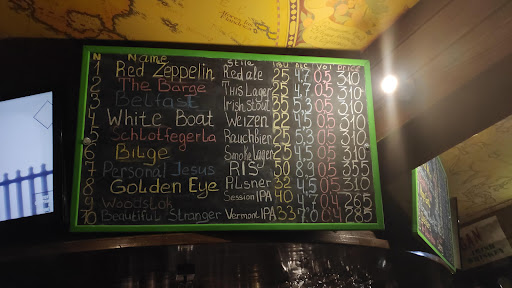 N Name Stile IBU Alc Vol Price
1 Red Zeppelin Red ale 25 4.7 0.5 340
2 The Barge This Lager 25 4.7 0.5 310
3 Belfast Irish Stout 35 5.3 0.5
4 White Boat Weizen 22 4.5 0.5 310
5 Schlotfegerla Rauchbier 25 5.3 0.5
6 Bilge Smoke Lager 25 4.5 0.5 310
7 Personal Jesus RIS 50 8.9 0.5 355
8 Golden Eye Pilsner 32 4.5 0.5 310
9 Woodstok Session IPA 40 4.7 0.4 265
10 Beautiful Stranger Vermont IPA 33 7.0 0.4 285